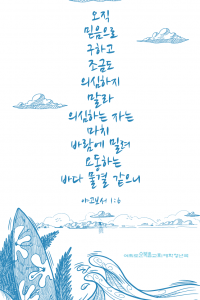 오직
믿음으로
구하고
조금도
의심하지
말라
의심하는 자는
마치
바람에 밀려
요동하는
바다 물결 같으니
야고보서 1:6